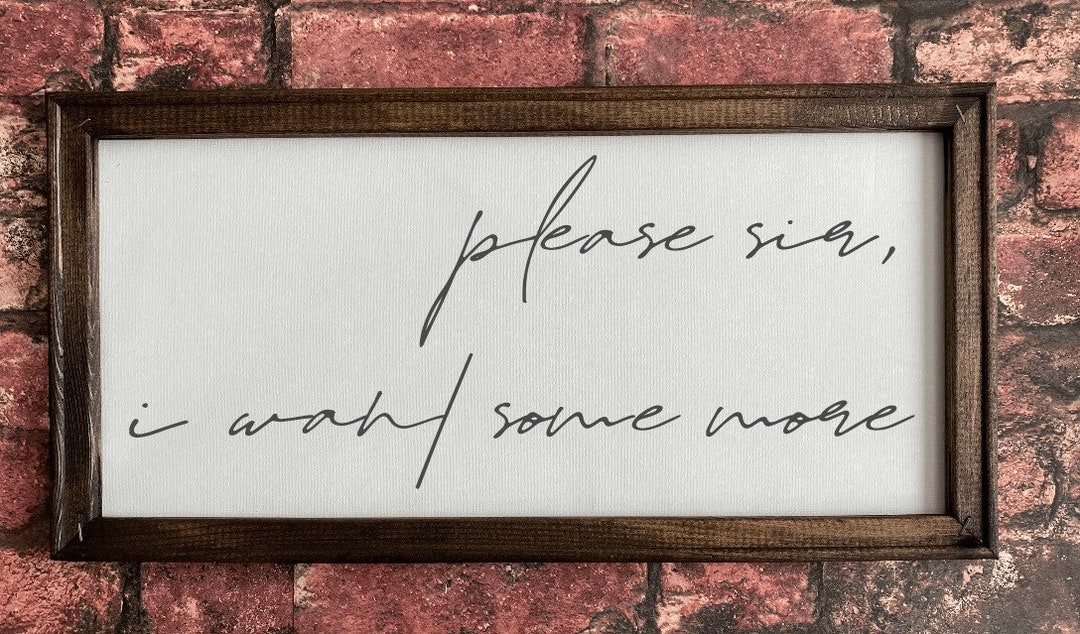 please sir,
i want some more